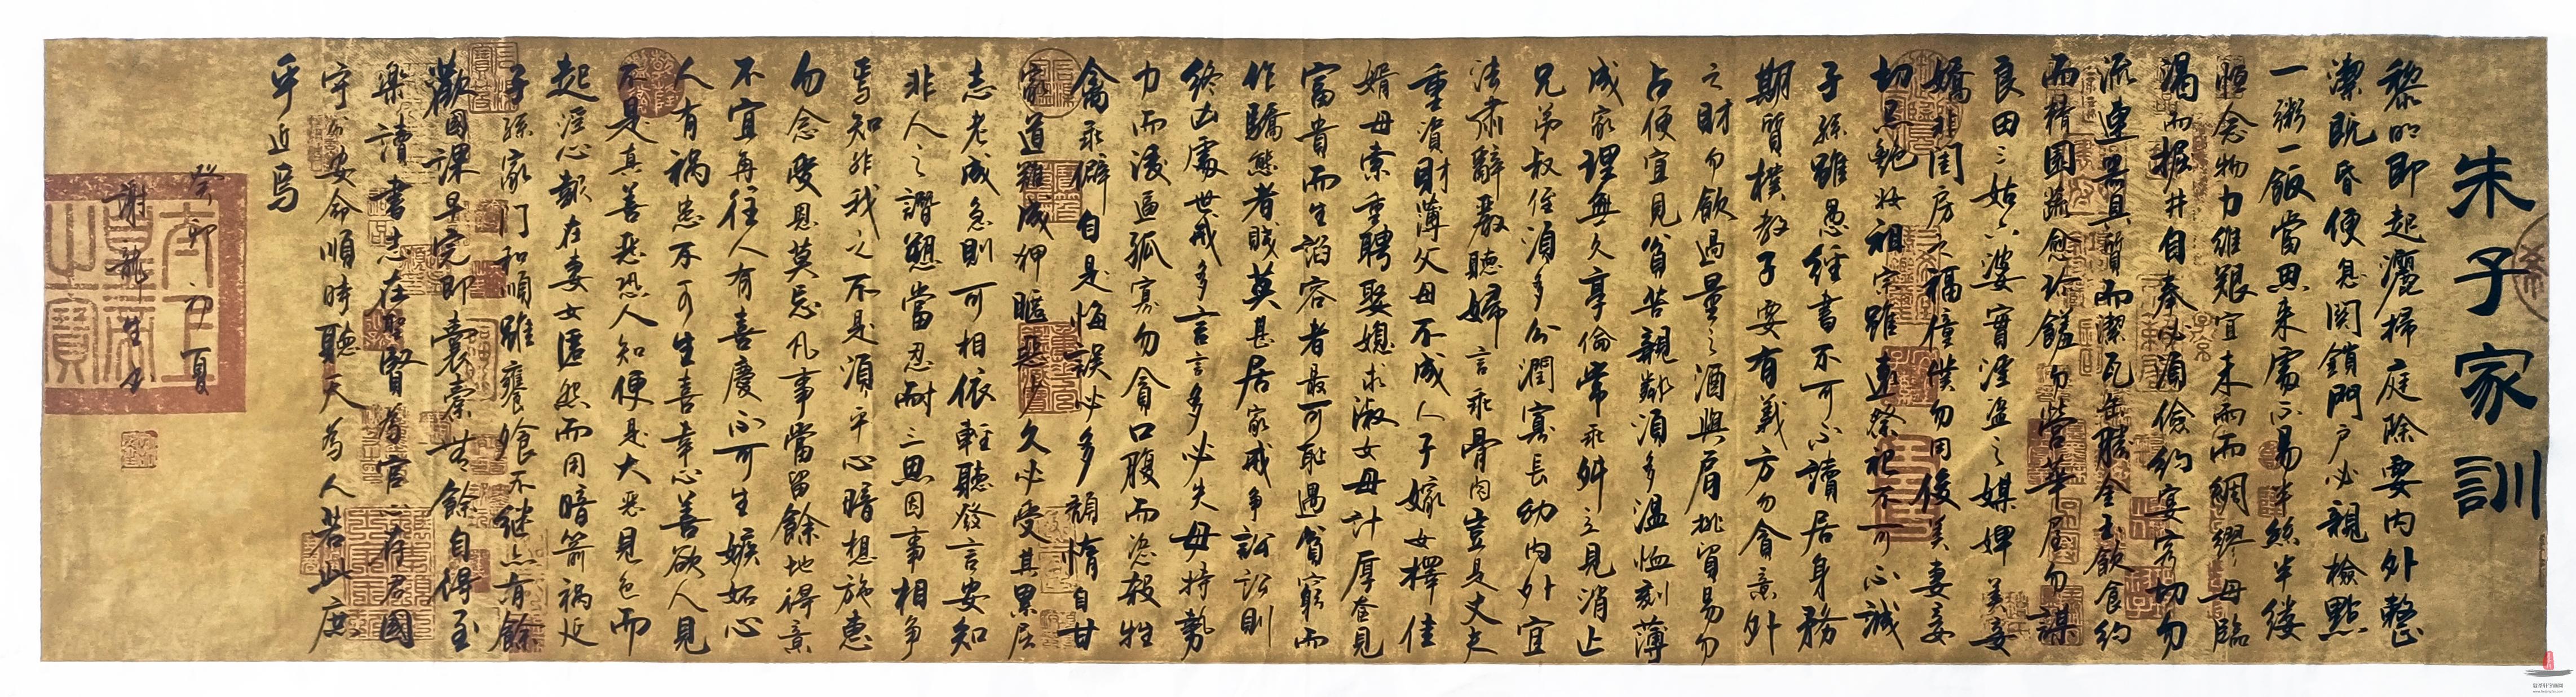 朱子家訓
黎明即起灑掃庭除要內外整
潔既昏便息関鎖門戶必親檢點
一粥一飯當思来處不易半絲半縷
恒念物力維艱宜未雨而綢繆毋臨
渴而掘井自奉必須儉約宴客切勿
流連器具質而潔瓦缶勝金玉飲食約
而精園蔬愈珍饈勿營華屋勿謀
良田三姑六婆實淫盜之媒婢美妾
嬌非閨房之福僮僕勿用俊美妻妾
切忌艷妝祖宗雖遠祭祀不可不誠
子孫雖愚經書不可不讀居身務
期質樸教子要有義方勿貪意外
之財勿飲過量之酒與肩挑貿易勿
占便宜見貧苦親鄰須多溫恤刻薄
成家理無久享倫常乖舛立見消亡
兄弟叔侄須多分潤寡長幼內外宜
法肅辭嚴聽婦言乖骨肉豈是丈夫
重資財薄父母不成人子嫁女擇佳
婿毋索重聘娶媳求淑女毋計厚奩見
富貴而生諂容者最可恥遇貧窮而
作驕態者賤莫甚居家戒争訟訟則
終凶處世戒多言言多必失毋恃勢
力而淩逼孤寡勿貪口腹而恣殺牲
禽乖僻自是悔誤必多頹惰自甘
家道難成狎暱惡少久必受其累屈
志老成急則可相依輕聽發言安知
非人之譖愬當忍耐三思因事相争
焉知非我之不是須平心暗想施惠
勿念受恩莫忘凡事當留餘地得意
不宜再往人有喜慶不可生嫉妬心
人有禍患不可生喜幸心善欲人見
不是真善惡恐人知便是大惡見色而
起淫心報在妻女匿怨而用暗箭禍延
子孫家門和順雖饔飧不继亦有餘
歡國課早完即囊橐無餘自得至
樂讀書志在聖賢為官心存君國
守分安命順時聽天為人若此庶
乎近焉
癸卯初夏
謝龍生書
太上皇帝之寶